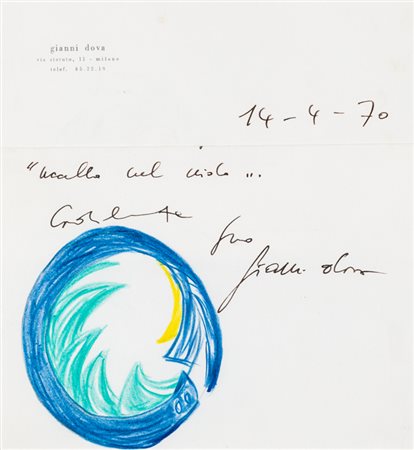 gianni dova
via stevato, 15 - milano
telef. 80.22.19
14-4-70
"uccello nel nido".
Cordialmente
Suo
Gianni Dova